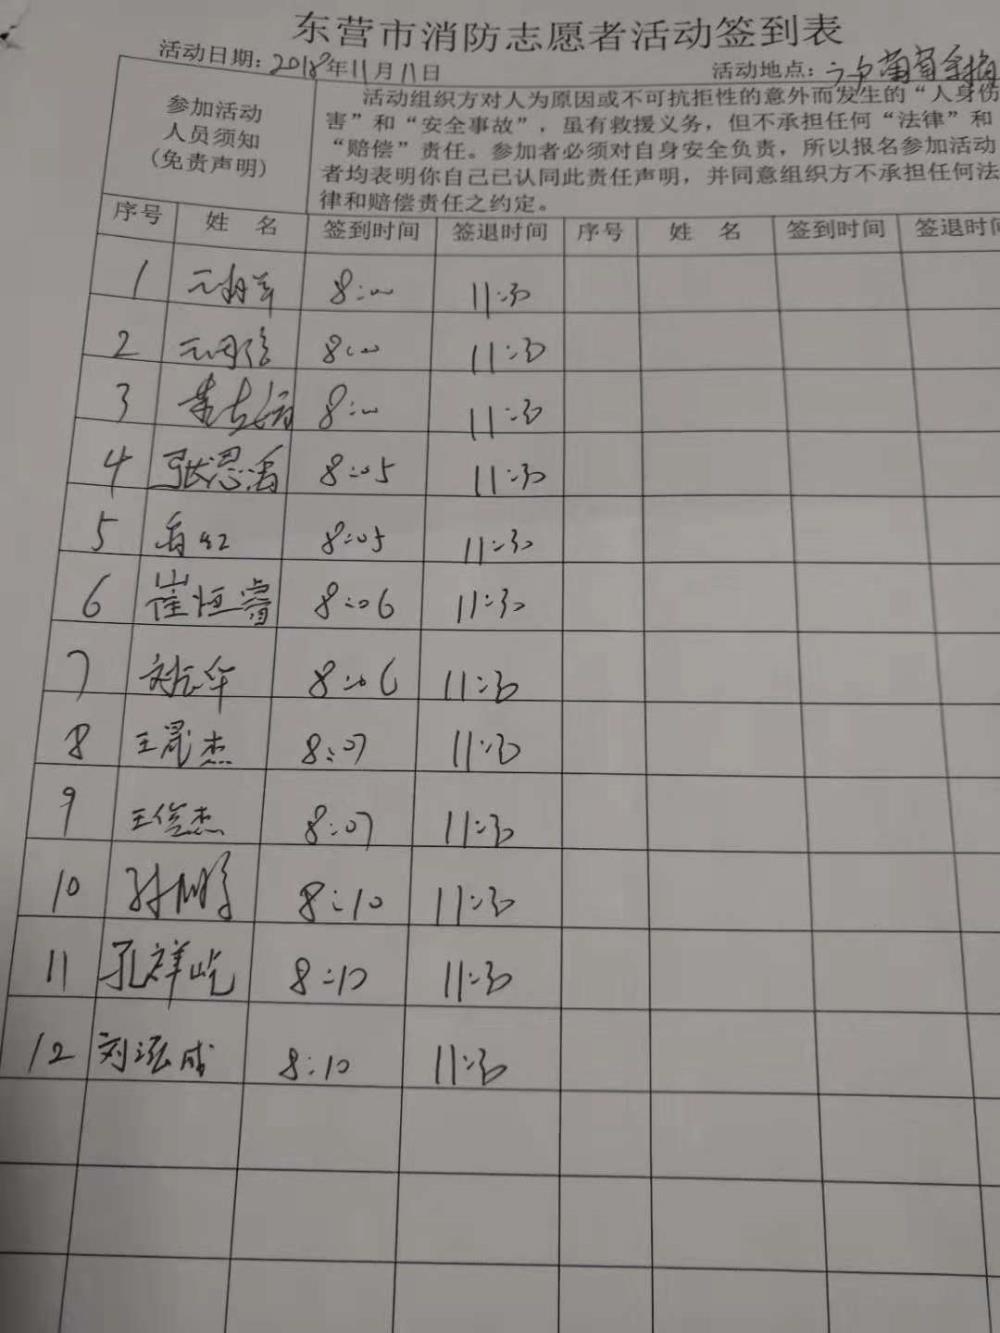 东营市消防志愿者活动签到表
活动日期：2018年11月11日 活动地点：
参加活动
人员须知
（免责声明）
活动组织方对人为原因或不可抗拒性的意外而发生的“人身伤
害”和“安全事故”，虽有救援义务，但不承担任何“法律”和
“赔偿”责任。参加者必须对自身安全负责，所以报名参加活动
者均表明你自己已认同此责任声明，并同意组织方不承担任何法
律和赔偿责任之约定。
序号 姓 名 签到时间 签退时间 序号 姓 名 签到时间 签退时间
1 8:00 11:30
2 8:00 11:30
3 8:00 11:30
4 张恩 8:05 11:30
5 8:05 11:30
6 崔恒睿 8:06 11:30
7 刘 8:06 11:30
8 王晟杰 8:07 11:30
9 王俊杰 8:07 11:30
10 孙鹏 8:10 11:30
11 孔祥屹 8:10 11:30
12 刘泓成 8:10 11:30